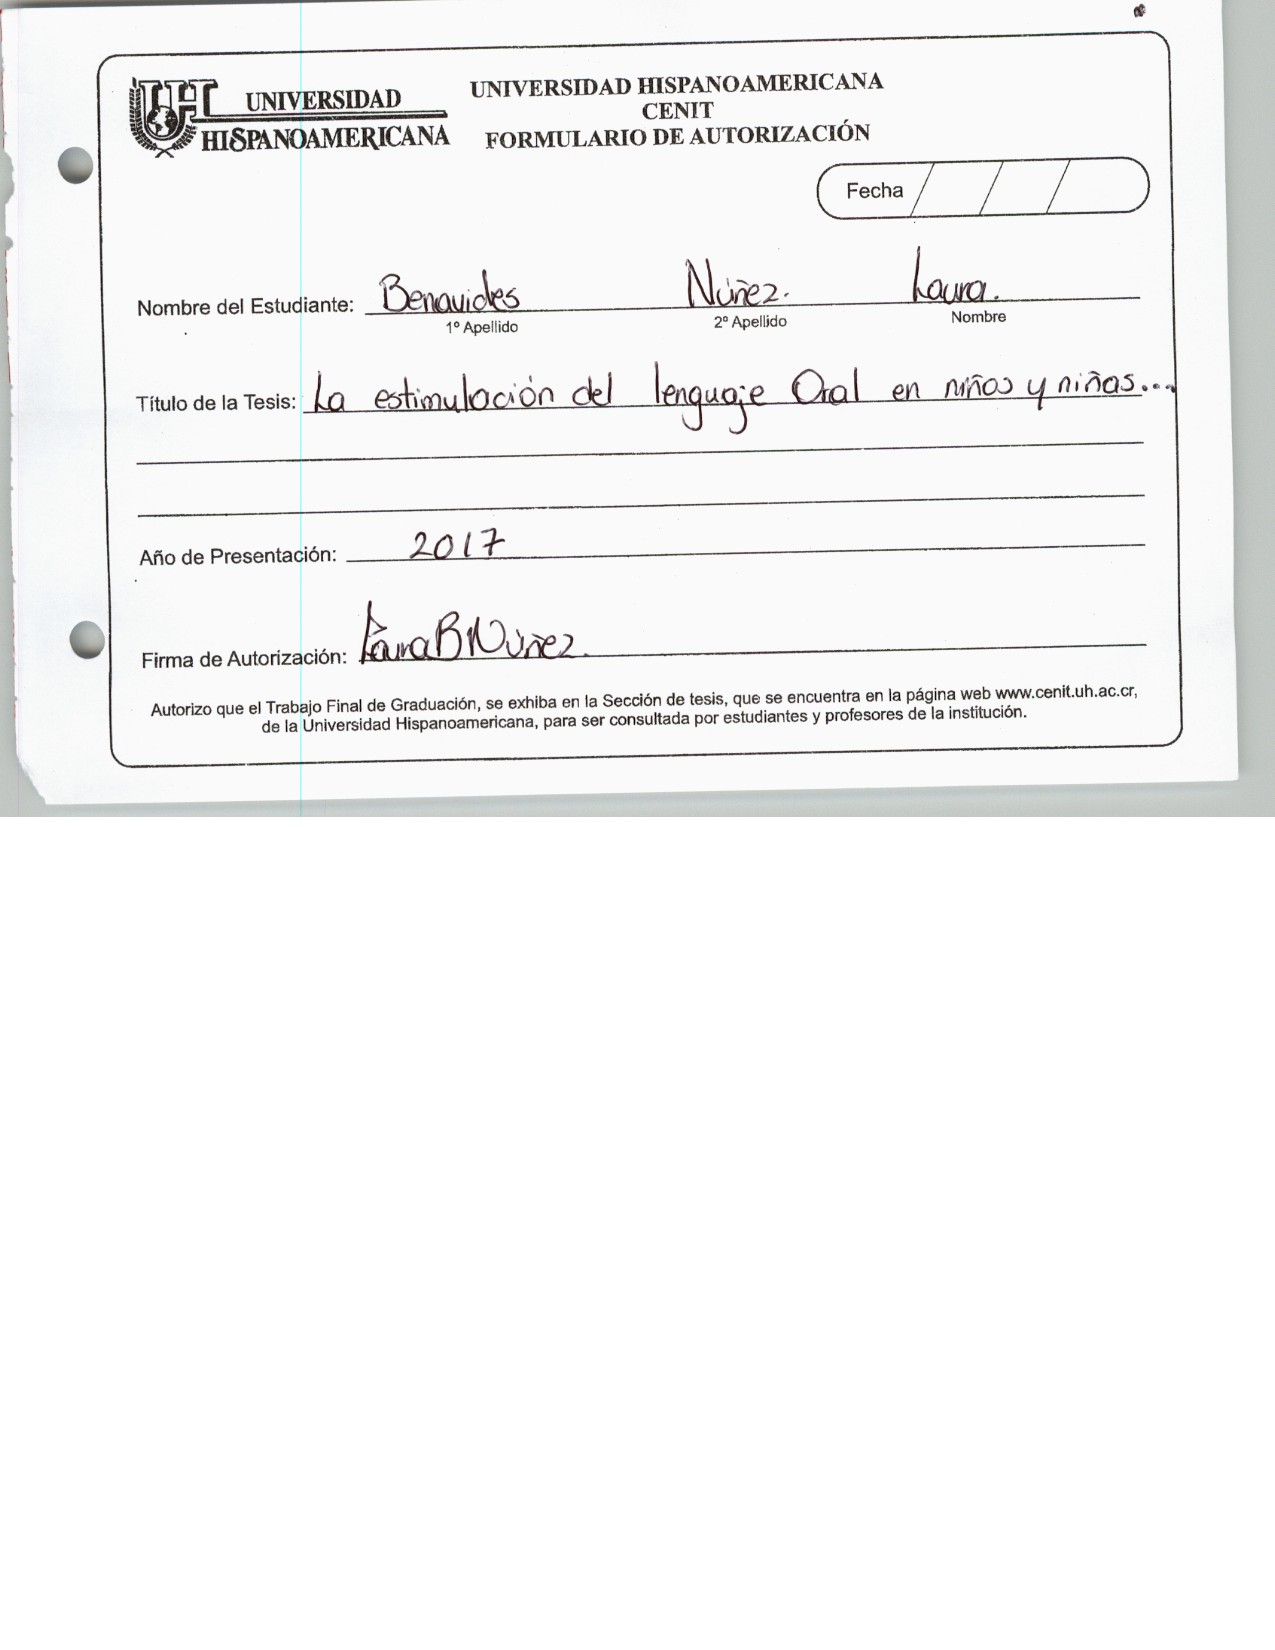 UNIVERSIDAD
HISPANOAMERICANA
UNIVERSIDAD HISPANOAMERICANA
CENIT
FORMULARIO DE AUTORIZACIÓN
Fecha
Nombre del Estudiante: Benavides Núñez. Laura.
1º Apellido 2º Apellido Nombre
Título de la Tesis: La estimulación del lenguaje Oral en niños y niñas...
Año de Presentación: 2017
Firma de Autorización: Laura B Núñez.
Autorizo que el Trabajo Final de Graduación, se exhiba en la Sección de tesis, que se encuentra en la página web www.cenit.uh.ac.cr,
de la Universidad Hispanoamericana, para ser consultada por estudiantes y profesores de la institución.